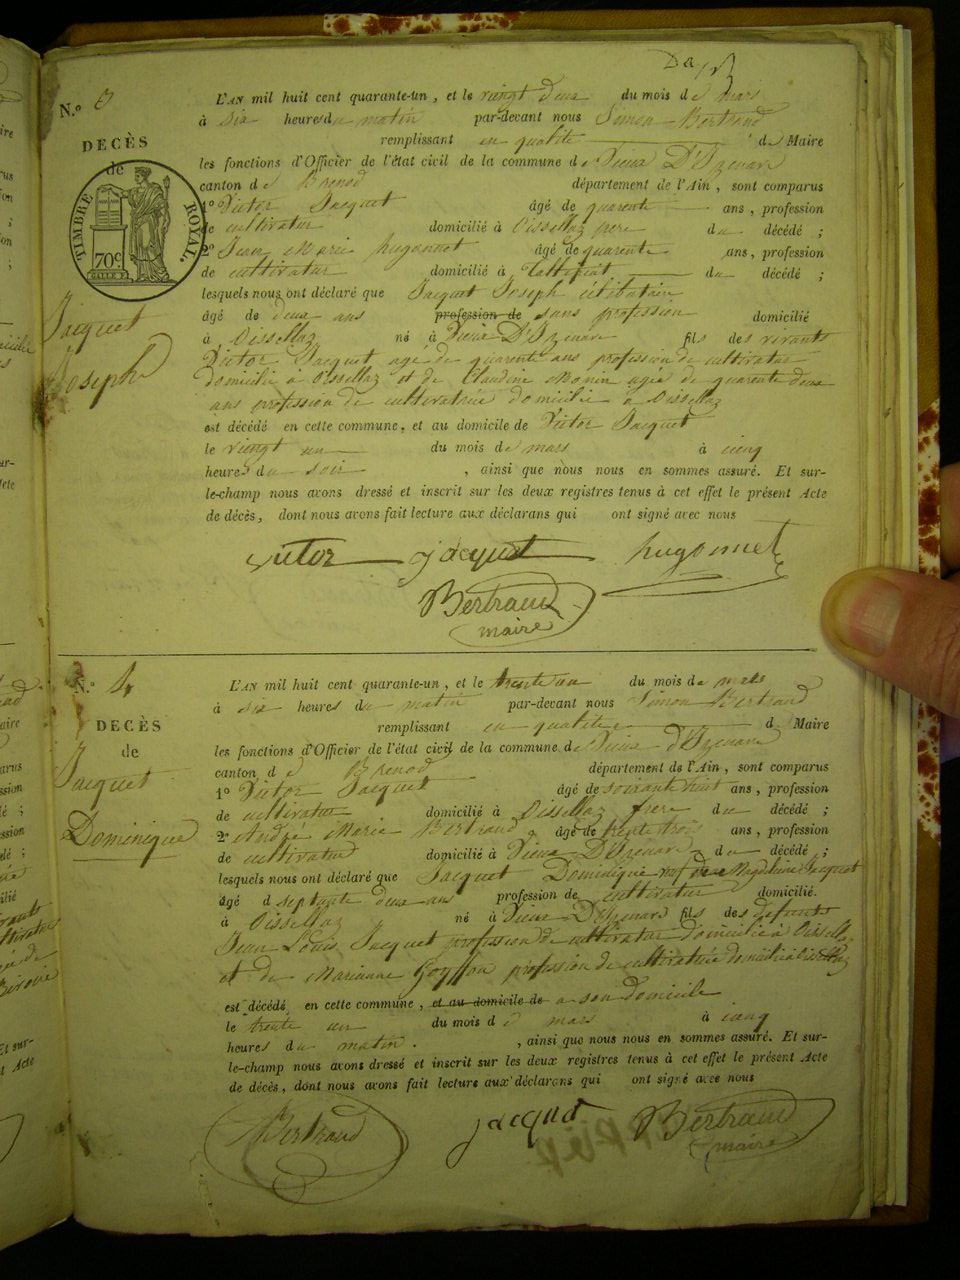 N.º 3
DÉCÈS
de
TIMBRE ROYAL.
70c
Jacquet
Joseph
L'AN mil huit cent quarante-un, et le vingt deux du mois de mars
à six heures du matin par-devant nous Simon Bertrand
remplissant en qualité de Maire
les fonctions d'Officier de l'état civil de la commune de Vieux D'Izenave
canton de Brenod département de l'Ain, sont comparus
1º Victor Jacquet âgé de quarente ans, profession
de cultivateur domicilié à Oissellaz frere du décédé ;
2º Jean Marie hugonnet âgé de quarente ans, profession
de cultivateur domicilié à du décédé ;
lesquels nous ont déclaré que Jacquet Joseph célibataire
âgé de deux ans profession de sans profession domicilié
à Oissellaz né à Vieux D'Izenave fils des vivants
Victor Jacquet age de quarente ans profession de cultivateur
domicilié à Oissellaz et de Claudine Monin agée de quarente deux
ans profession de cultivatrice domicilié à Oissellaz
est décédé en cette commune, et au domicile de Victor Jacquet
le vingt un du mois de mars à cinq
heures du soir , ainsi que nous nous en sommes assuré. Et sur-
le-champ nous avons dressé et inscrit sur les deux registres tenus à cet effet le présent Acte
de décès, dont nous avons fait lecture aux déclarans qui ont signé avec nous
victor jacquet hugonnet
Bertrand
maire
N.º 4
DÉCÈS
de
Jacquet
Dominique
L'AN mil huit cent quarante-un, et le trente un du mois de mars
à six heures du matin par-devant nous Simon Bertrand
remplissant en qualité de Maire
les fonctions d'Officier de l'état civil de la commune de Vieux d'Izenave
canton de Brenod département de l'Ain, sont comparus
1º Victor Jacquet âgé de soixante huit ans, profession
de cultivateur domicilié à Oissellaz frere du décédé ;
2º André Marie Bertrand âgé de trente trois ans, profession
de cultivateur domicilié à Vieux D'Izenave du décédé ;
lesquels nous ont déclaré que Jacquet Dominique veuf de Magdelaine Jacquet
âgé de septante deux ans profession de cultivateur domicilié.
à Oissellaz né à Vieux D'Izenave fils des défunts
Jean Louis Jacquet profession de cultivateur domicilié à Oissellaz
et de Marianne Goyffon profession de cultivatrice domicilié à Oissellaz
est décédé en cette commune, et au domicile de a son domicile
le trente un du mois de mars à cinq
heures du matin. , ainsi que nous nous en sommes assuré. Et sur-
le-champ nous avons dressé et inscrit sur les deux registres tenus à cet effet le présent Acte
de décès, dont nous avons fait lecture aux déclarans qui ont signé avec nous
Bertrand jacquet Bertrand
maire